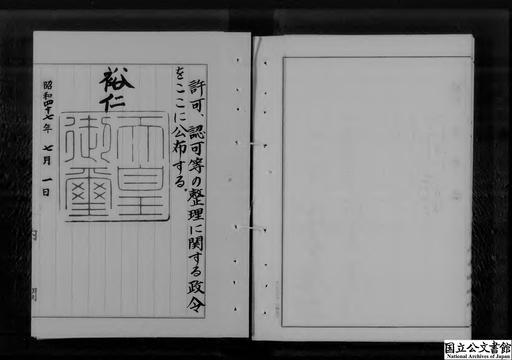 許可、認可等の整理に関する政令
をここに公布する。
裕仁
天皇
御璽
昭和四十七年 七月 一日
内閣
国立公文書館
National Archives of Japan